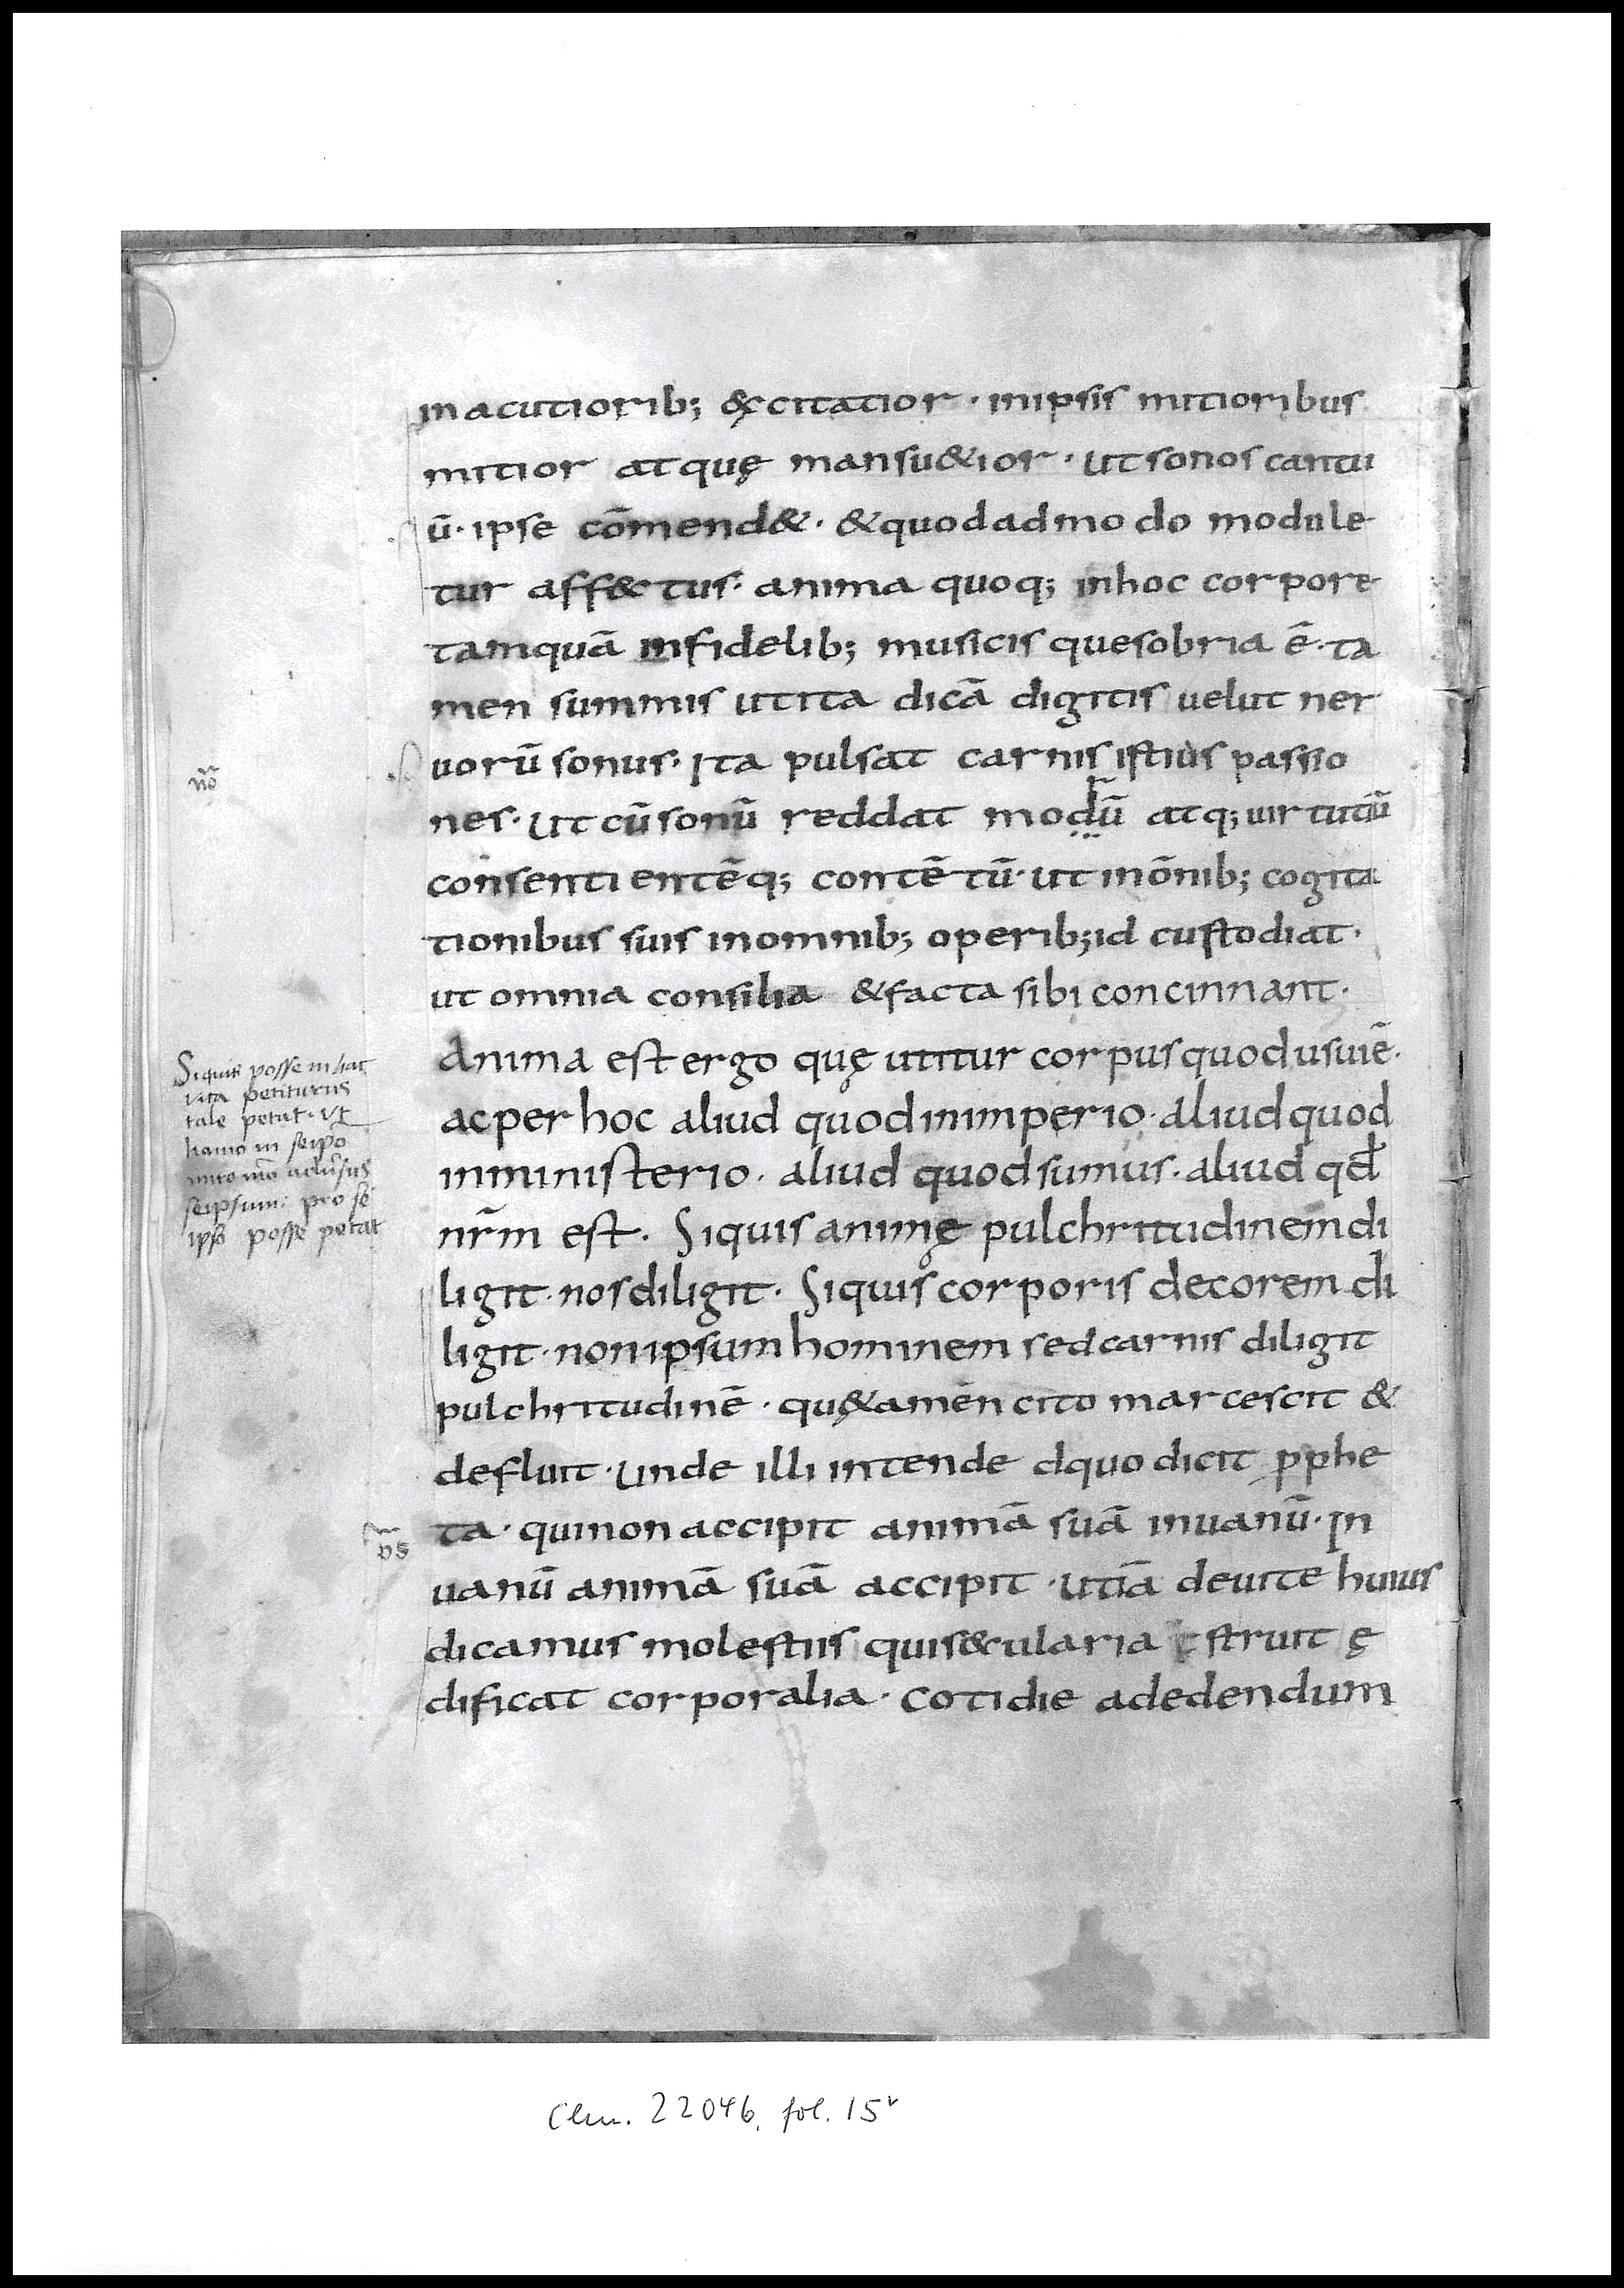 in acutiorib; &̨citatior · in ipsis mitioribus
mitior atquę mansu&ior · ut sonos cantu
ū · ipse cōmend& · & quodadmodo module
tur aff&ctus · anima quoq; in hoc corpore
tamquā in fidelib; musicis que sobria ē · ta
men summis ut ita dicā digitis uelut ner
uorū sonus · Ita pulsat carnis istius passio
nes · Ut cū sonū reddat modū atq; uirtutū
consentientēq; contētū · ut in ōnib; cogita
tionibus suis in omnib; operib; id custodiat ·
ut omnia consilia & facta sibi concinnant ·
Anima est ergo quę utitur corpus quod usui ē ·
ac per hoc aliud quod in imperio · aliud quod
in ministerio · aliud quod sumus · aliud qđ
nr̄m est · Siquis animę pulchritudinem di
ligit · nos diligit · Siquis corporis decorem di
ligit · non ipsum hominem sed carnis diligit
pulchritudinē · quę&amen cito marcescit &
defluit · Unde illi intende dquo dicit pphe
ta · qui non accipit animā suā in uanū · In
uanū animā suā accipit · Utiā de uite huius
dicamus molestiis qui s&cularia struit ę
dificat corporalia · cotidie ad edendum
nō
Siquis posse in hac
vita petiturus
tale petat · vt
hamo in seipo
seipsum: pro se
ipso posse petat
ps
Clm. 22046, fol. 15v